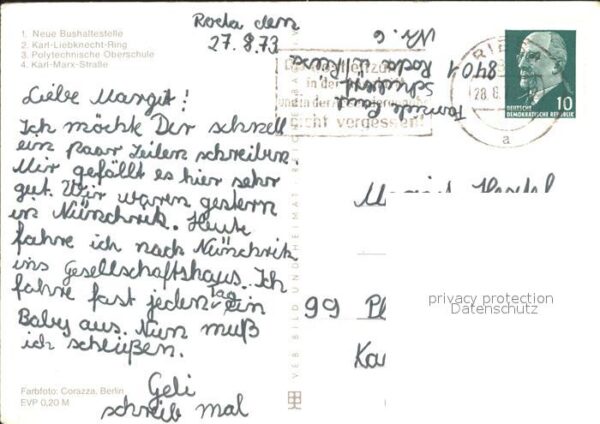 1. Neue Bushaltestelle
2. Karl-Liebknecht-Ring
3. Polytechnische Oberschule
4. Karl-Marx-Straße
Roda den
27.8.73
Liebe Margit!
Ich möchte Dir schnell
ein paar Zeilen schreiben.
Mir gefällt es hier sehr
gut. Wir waren gestern
in Nünschrik. Heute
fahre ich nach Nünschrik
ins Gesellschaftshaus. Ich
fahre fast jeden Tag ein
Baby aus. Nun muß
ich schließen.
Geli
schreib mal
Farbfoto: Corazza, Berlin
EVP 0,20 M
VEB BILD UND HEIMAT
Familie
Schubert
8401 Roda ü/Riesa
Nr. 6
in der
nicht vergessen!
RIE
28.8.
a
10
DEUTSCHE
DEMOKRATISCHE REPUBLIK
Margit
99 Pl
Ka
privacy protection
Datenschutz